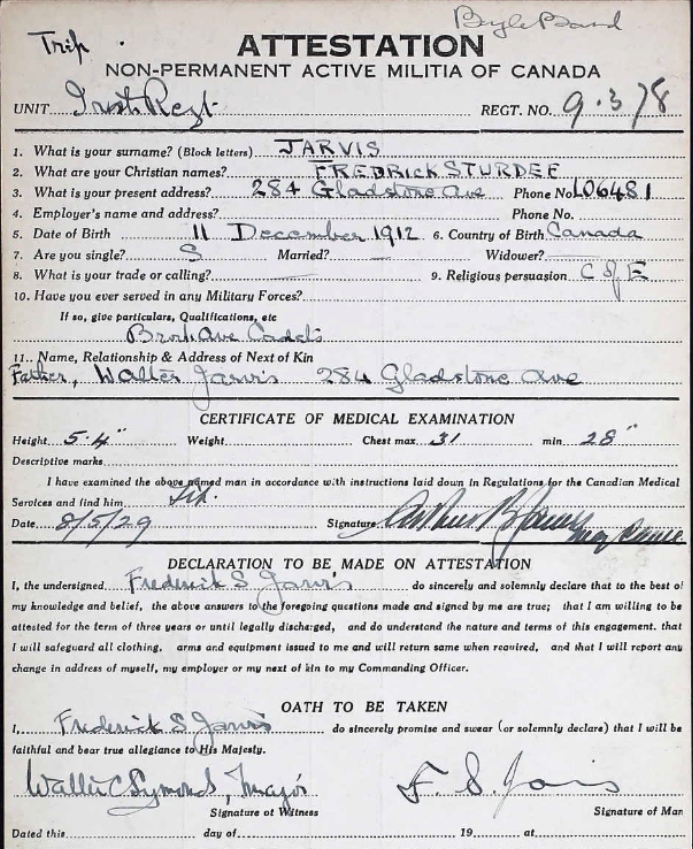 Bugle Band
Trip .
ATTESTATION
NON-PERMANENT ACTIVE MILITIA OF CANADA
UNIT Irish Regt REGT. NO. 9·3/8
1. What is your surname? (Block letters) JARVIS
2. What are your Christian names? FREDRICK STURDEE
3. What is your present address? 284 Gladstone Ave Phone No LO6481
4. Employer's name and address? Phone No.
5. Date of Birth 11 December 1912 6. Country of Birth Canada
7. Are you single? S Married? — Widower? —
8. What is your trade or calling? — 9. Religious persuasion C of E
10. Have you ever served in any Military Forces?
If so, give particulars, Qualifications, etc
Brock Ave Cadets
11.. Name, Relationship & Address of Next of Kin
Father, Walter Jarvis 284 Gladstone Ave
CERTIFICATE OF MEDICAL EXAMINATION
Height 5·4" Weight Chest max. 31 min. 28"
Descriptive marks
I have examined the above named man in accordance with instructions laid down in Regulations for the Canadian Medical
Services and find him Fit.
Date 8/5/29 Signature Arthur B James
DECLARATION TO BE MADE ON ATTESTATION
I, the undersigned Frederick S Jarvis do sincerely and solemnly declare that to the best of
my knowledge and belief, the above answers to the foregoing questions made and signed by me are true; that I am willing to be
attested for the term of three years or until legally discharged, and do understand the nature and terms of this engagement. that
I will safeguard all clothing. arms and equipment issued to me and will return same when required, and that I will report any
change in address of myself, my employer or my next of kin to my Commanding Officer.
OATH TO BE TAKEN
I, Frederick S Jarvis do sincerely promise and swear (or solemnly declare) that I will be
faithful and bear true allegiance to His Majesty.
Walter C Symonds, Major F. S. Jarvis
Signature of Witness Signature of Man
Dated this day of 19 at